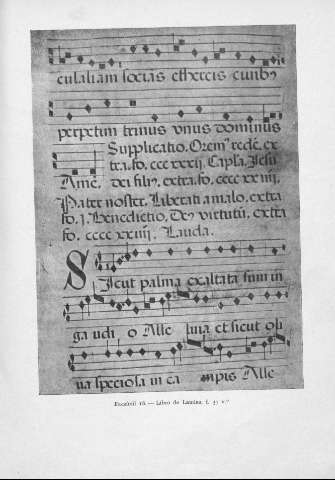 eulaliam socias ethereis civibꝰ
perpetim trinus vnus dominus
Supplicatio. Oremꝰ redē. ex
tra. fo. cccxxxij. Capła. Jesu
Amē. dei filiꝰ. extra. fo. ccccxxiiij.
Pater noster. Libera a malo. extra
fo. j. Benedictio. Deꝰ virtutū. extra
fo. ccccxxiiij. Lauda.
Sicut palma exaltata sum in
ga udi o Alle luia et sicut oli
va speciosa in ca mpis Alle
Facsímil 16. — Libro de Laudes, f. 37 v.º